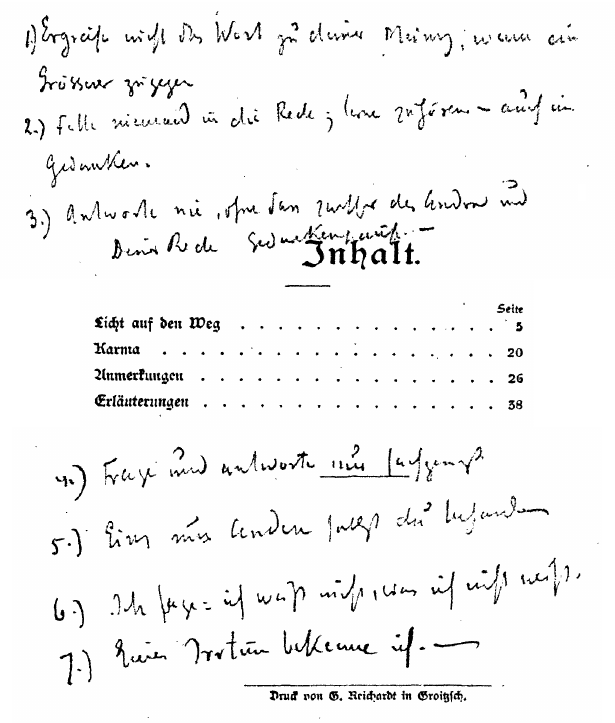 1) Ergreife nicht das Wort zu deiner Meinung, wenn ein
Grösserer zugegen
2.) Falle niemand in die Rede; lerne zuhören – auch in
Gedanken.
3.) Antworte nie, ohne dass zwischen des Andern und
Deiner Rede Gedankenpause. –
Inhalt.
Seite
Licht auf den Weg . . . . . . . . . . . . . . 5
Karma . . . . . . . . . . . . . . . . . . 20
Anmerkungen . . . . . . . . . . . . . . . . 26
Erläuterungen . . . . . . . . . . . . . . . . 38
4.) Frage und antworte nur sachgemäß
5.) Eines nur Andern sollst du
6.) Ich sage: ich weiß nicht, was ich nicht weiß.
7.) Einen Irrtum bekenne ich. —
Druck von G. Reichardt in Groitzsch.